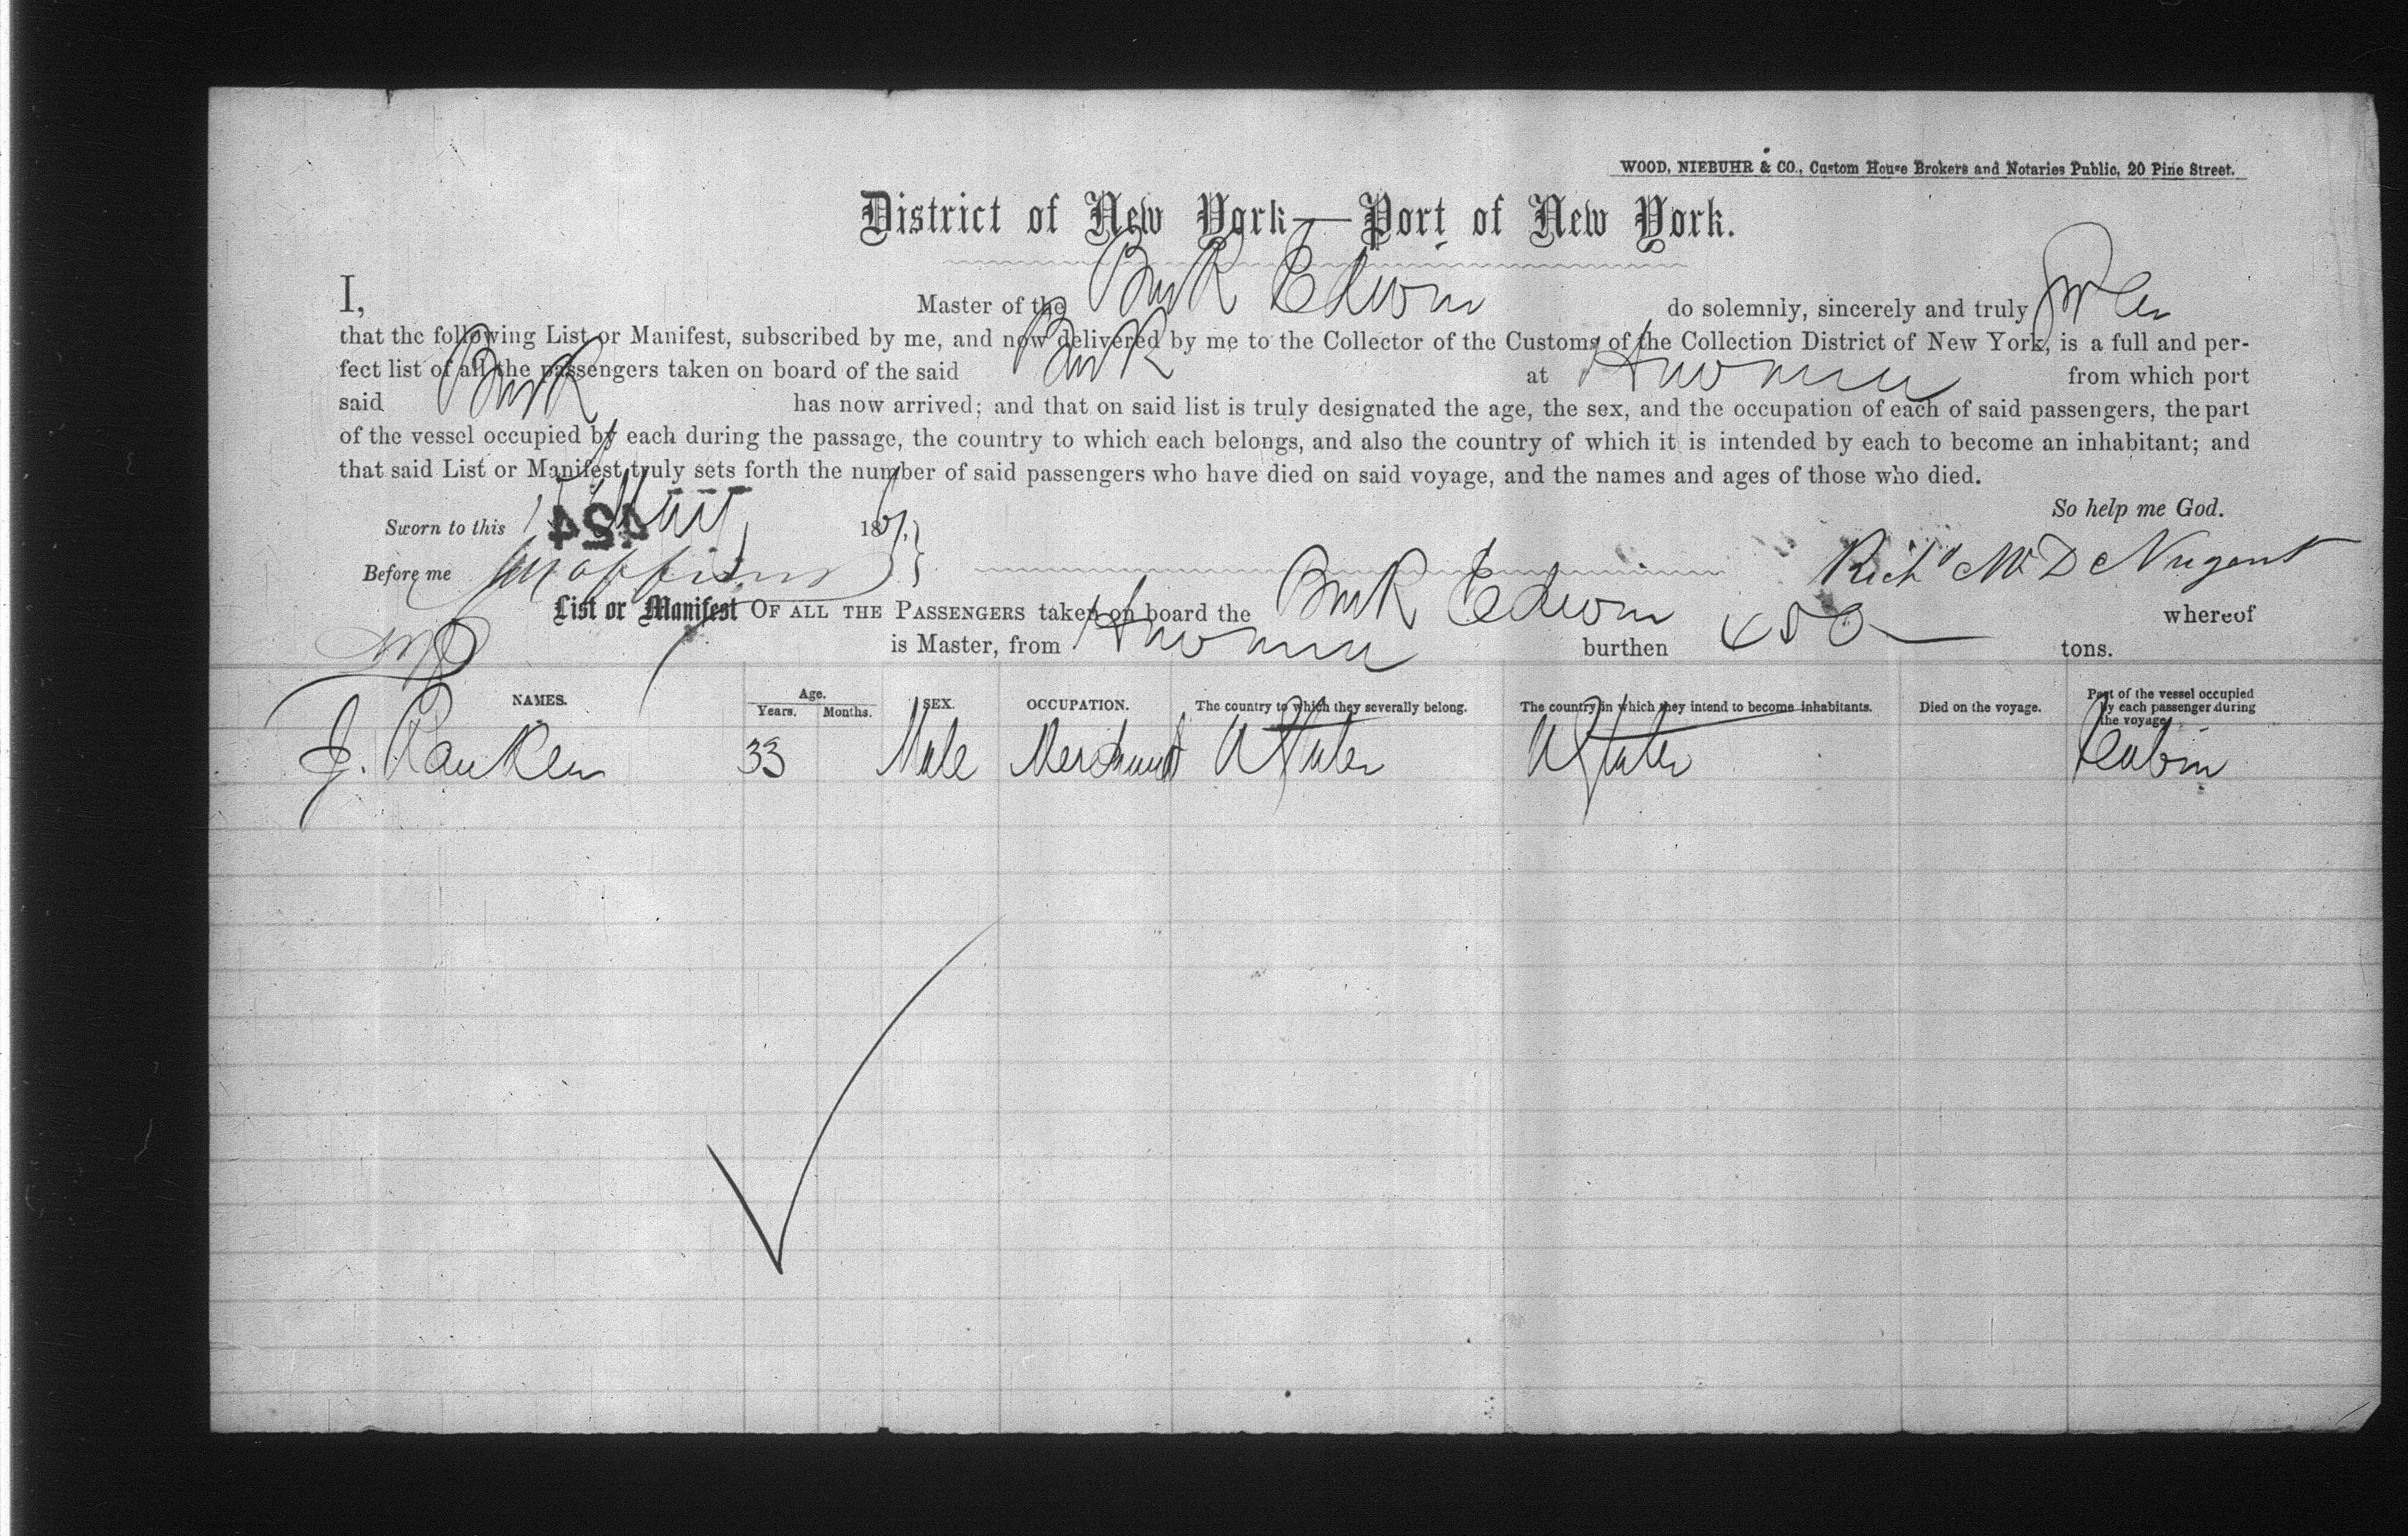 WOOD, NIEBUHR & CO., Custom House Brokers and Notaries Public, 20 Pine Street.
District of New York—Port of New York.
I, Master of the Bark Edwin do solemnly, sincerely and truly
that the following List or Manifest, subscribed by me, and now delivered by me to the Collector of the Customs of the Collection District of New York, is a full and per-
fect list of all the passengers taken on board of the said Bark at from which port
said Bark has now arrived; and that on said list is truly designated the age, the sex, and the occupation of each of said passengers, the part
of the vessel occupied by each during the passage, the country to which each belongs, and also the country of which it is intended by each to become an inhabitant; and
that said List or Manifest truly sets forth the number of said passengers who have died on said voyage, and the names and ages of those who died.
So help me God.
Sworn to this 454 18
Before me Richd McD Nugent
List or Manifest OF ALL THE PASSENGERS taken on board the Bark Edwin whereof
is Master, from burthen 450 tons.
NAMES. Age. Years. Months. SEX. OCCUPATION. The country to which they severally belong. The country in which they intend to become inhabitants. Died on the voyage. Part of the vessel occupied by each passenger during the voyage
J. Ranken 33 Male Merchant U States U States Cabin